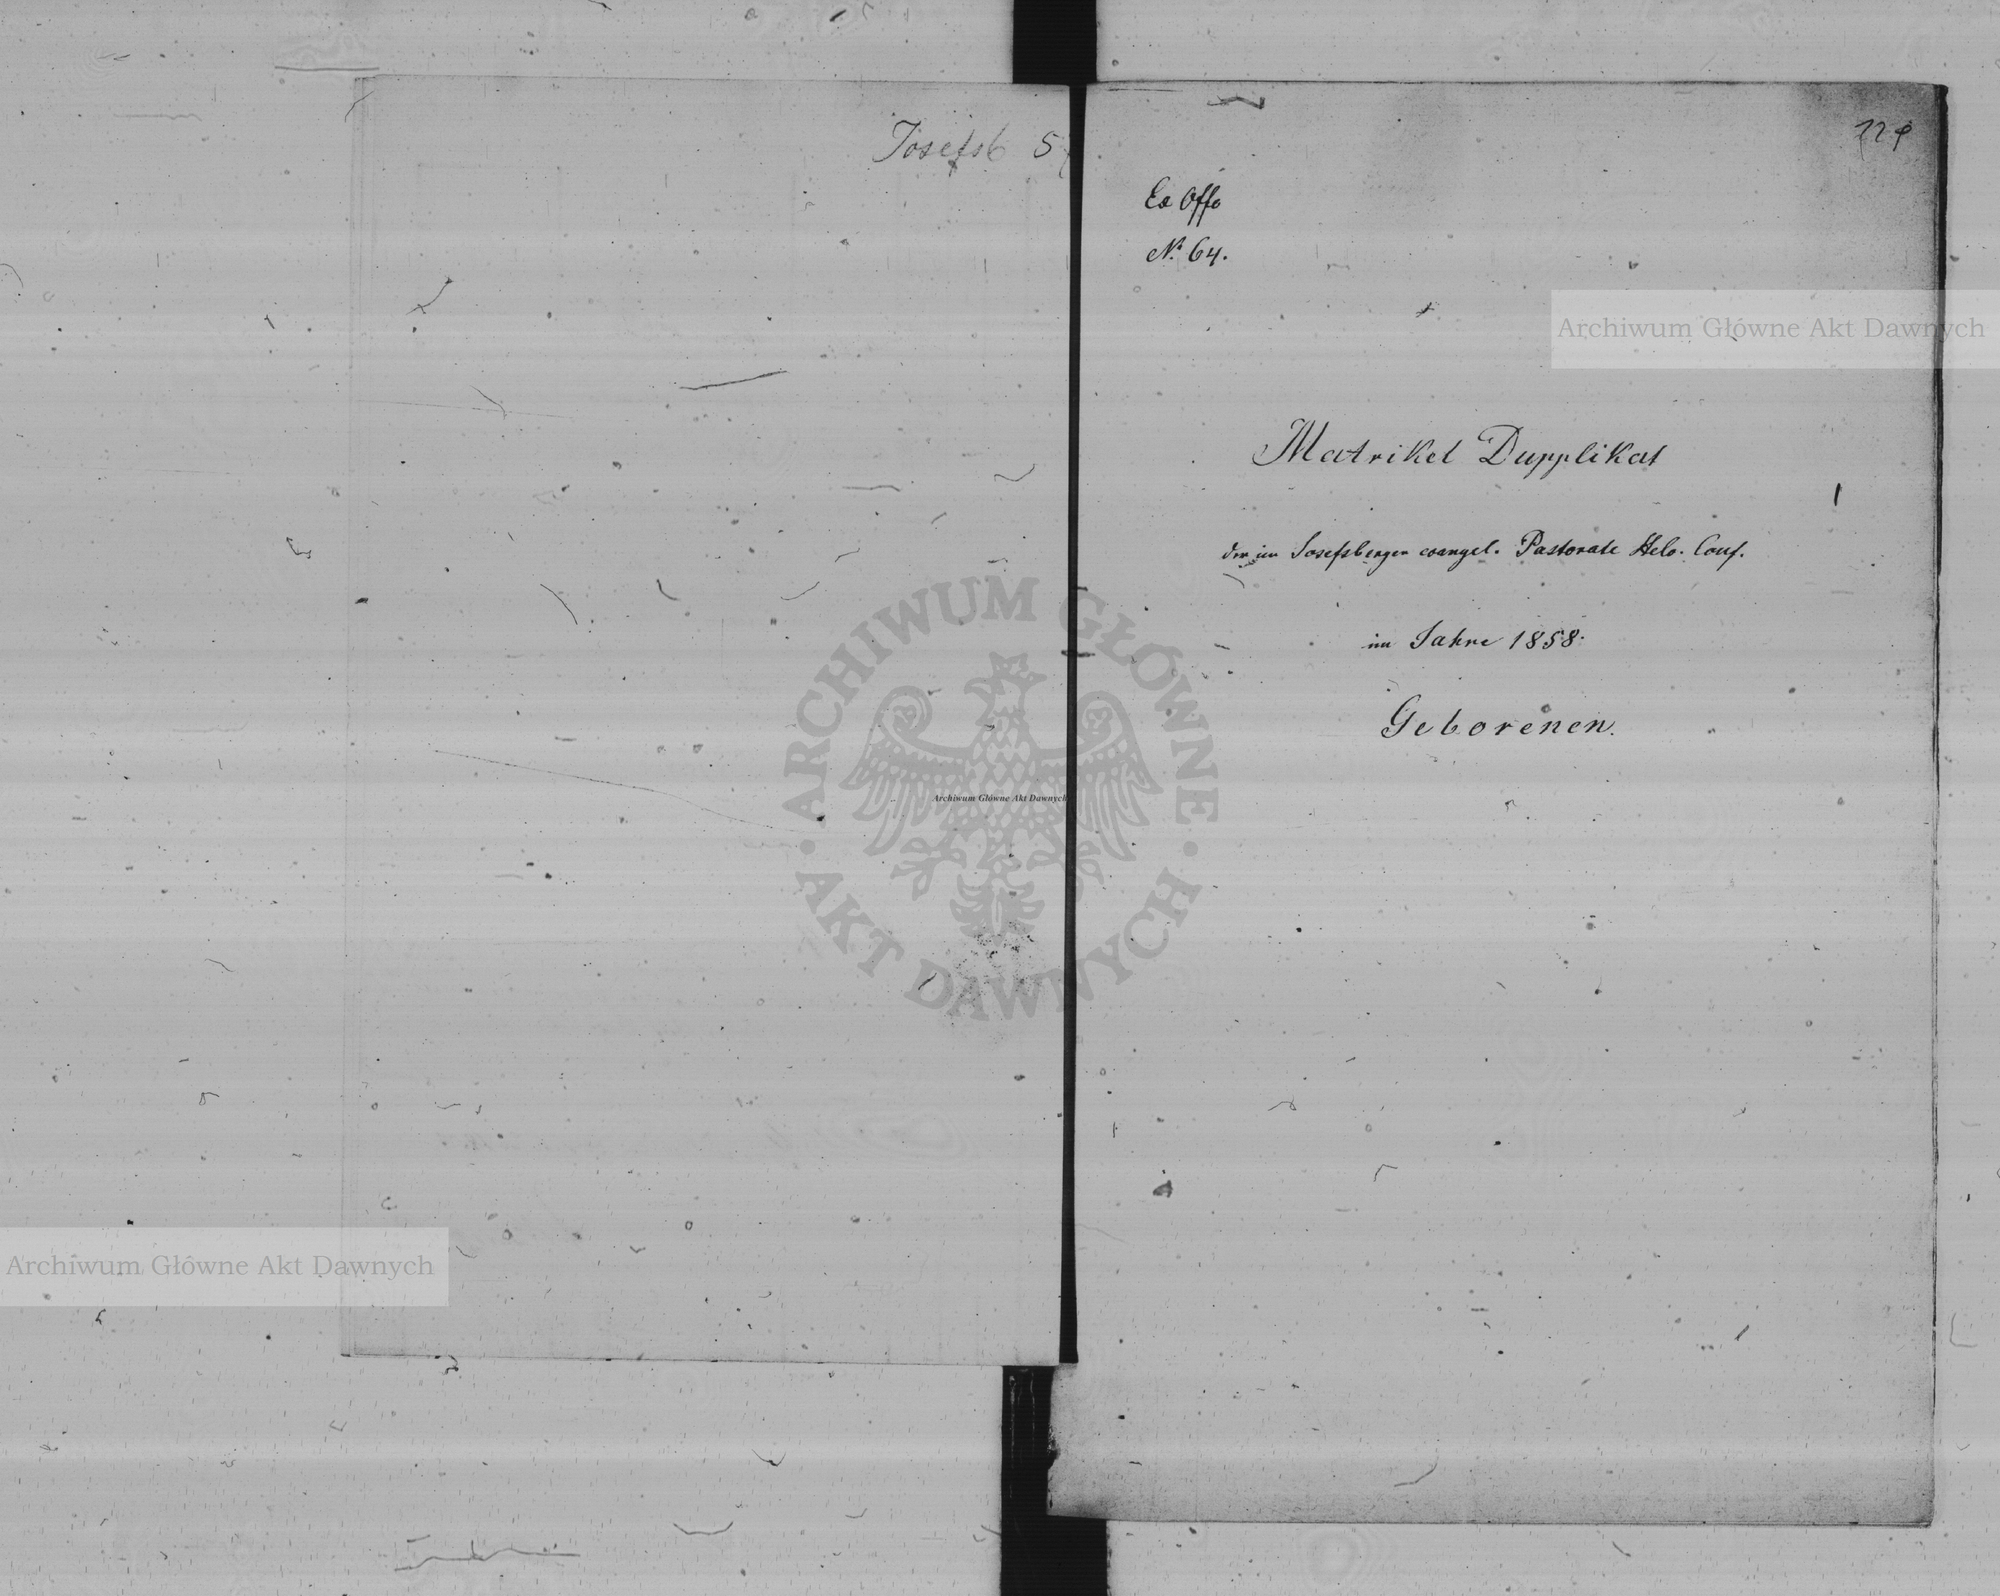 Josefsb 5
Ex Offo
N. 64.
Matrikel Dupplikat
der im Josefsberger evangel. Pastorate Helv. Conf.
im Jahre 1858.
Geborenen.
Archiwum Główne Akt Dawnych
ARCHIWUM GŁÓWNE AKT DAWNYCH
Archiwum Główne Akt Dawnych
Archiwum Główne Akt Dawnych